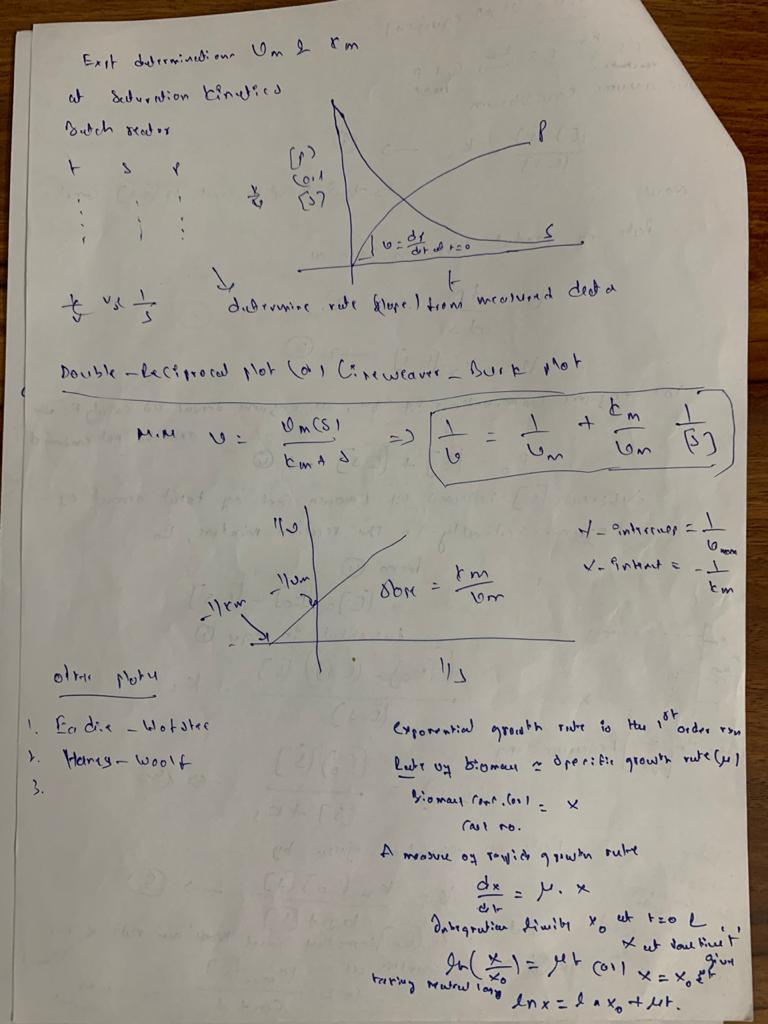 Expt determination Vm & Km
at Saturation kinetics
Batch reactor
t S P
[P]
(or)
[S]
P
S
v = ds/dt at t=0
t
1/v vs 1/S
determine rate (slope) from measured data
Double-Reciprocal plot (or) Lineweaver-Burk plot
M.M v = Vm(S)/Km+S => 1/v = 1/vm + Km/vm 1/[S]
1/v
-1/Km
1/vm
slope = Km/vm
1/S
Y-intercept = 1/vmax
X-intercept = -1/Km
other plots
1. Eadie-Hofstee
2. Hanes-Woolf
3.
Exponential growth rate is the 1st order rxn
Rate of biomass = specific growth rate (μ)
Biomass conc. (or) = x
cell no.
A measure of rapid growth rate
dx/dt = μ. x
Integration limits x0 at t=0 &
x at some time 't'
give
ln(x/x0) = μt (or) x = x0 e^μt
taking natural log
ln x = ln x0 + μt.